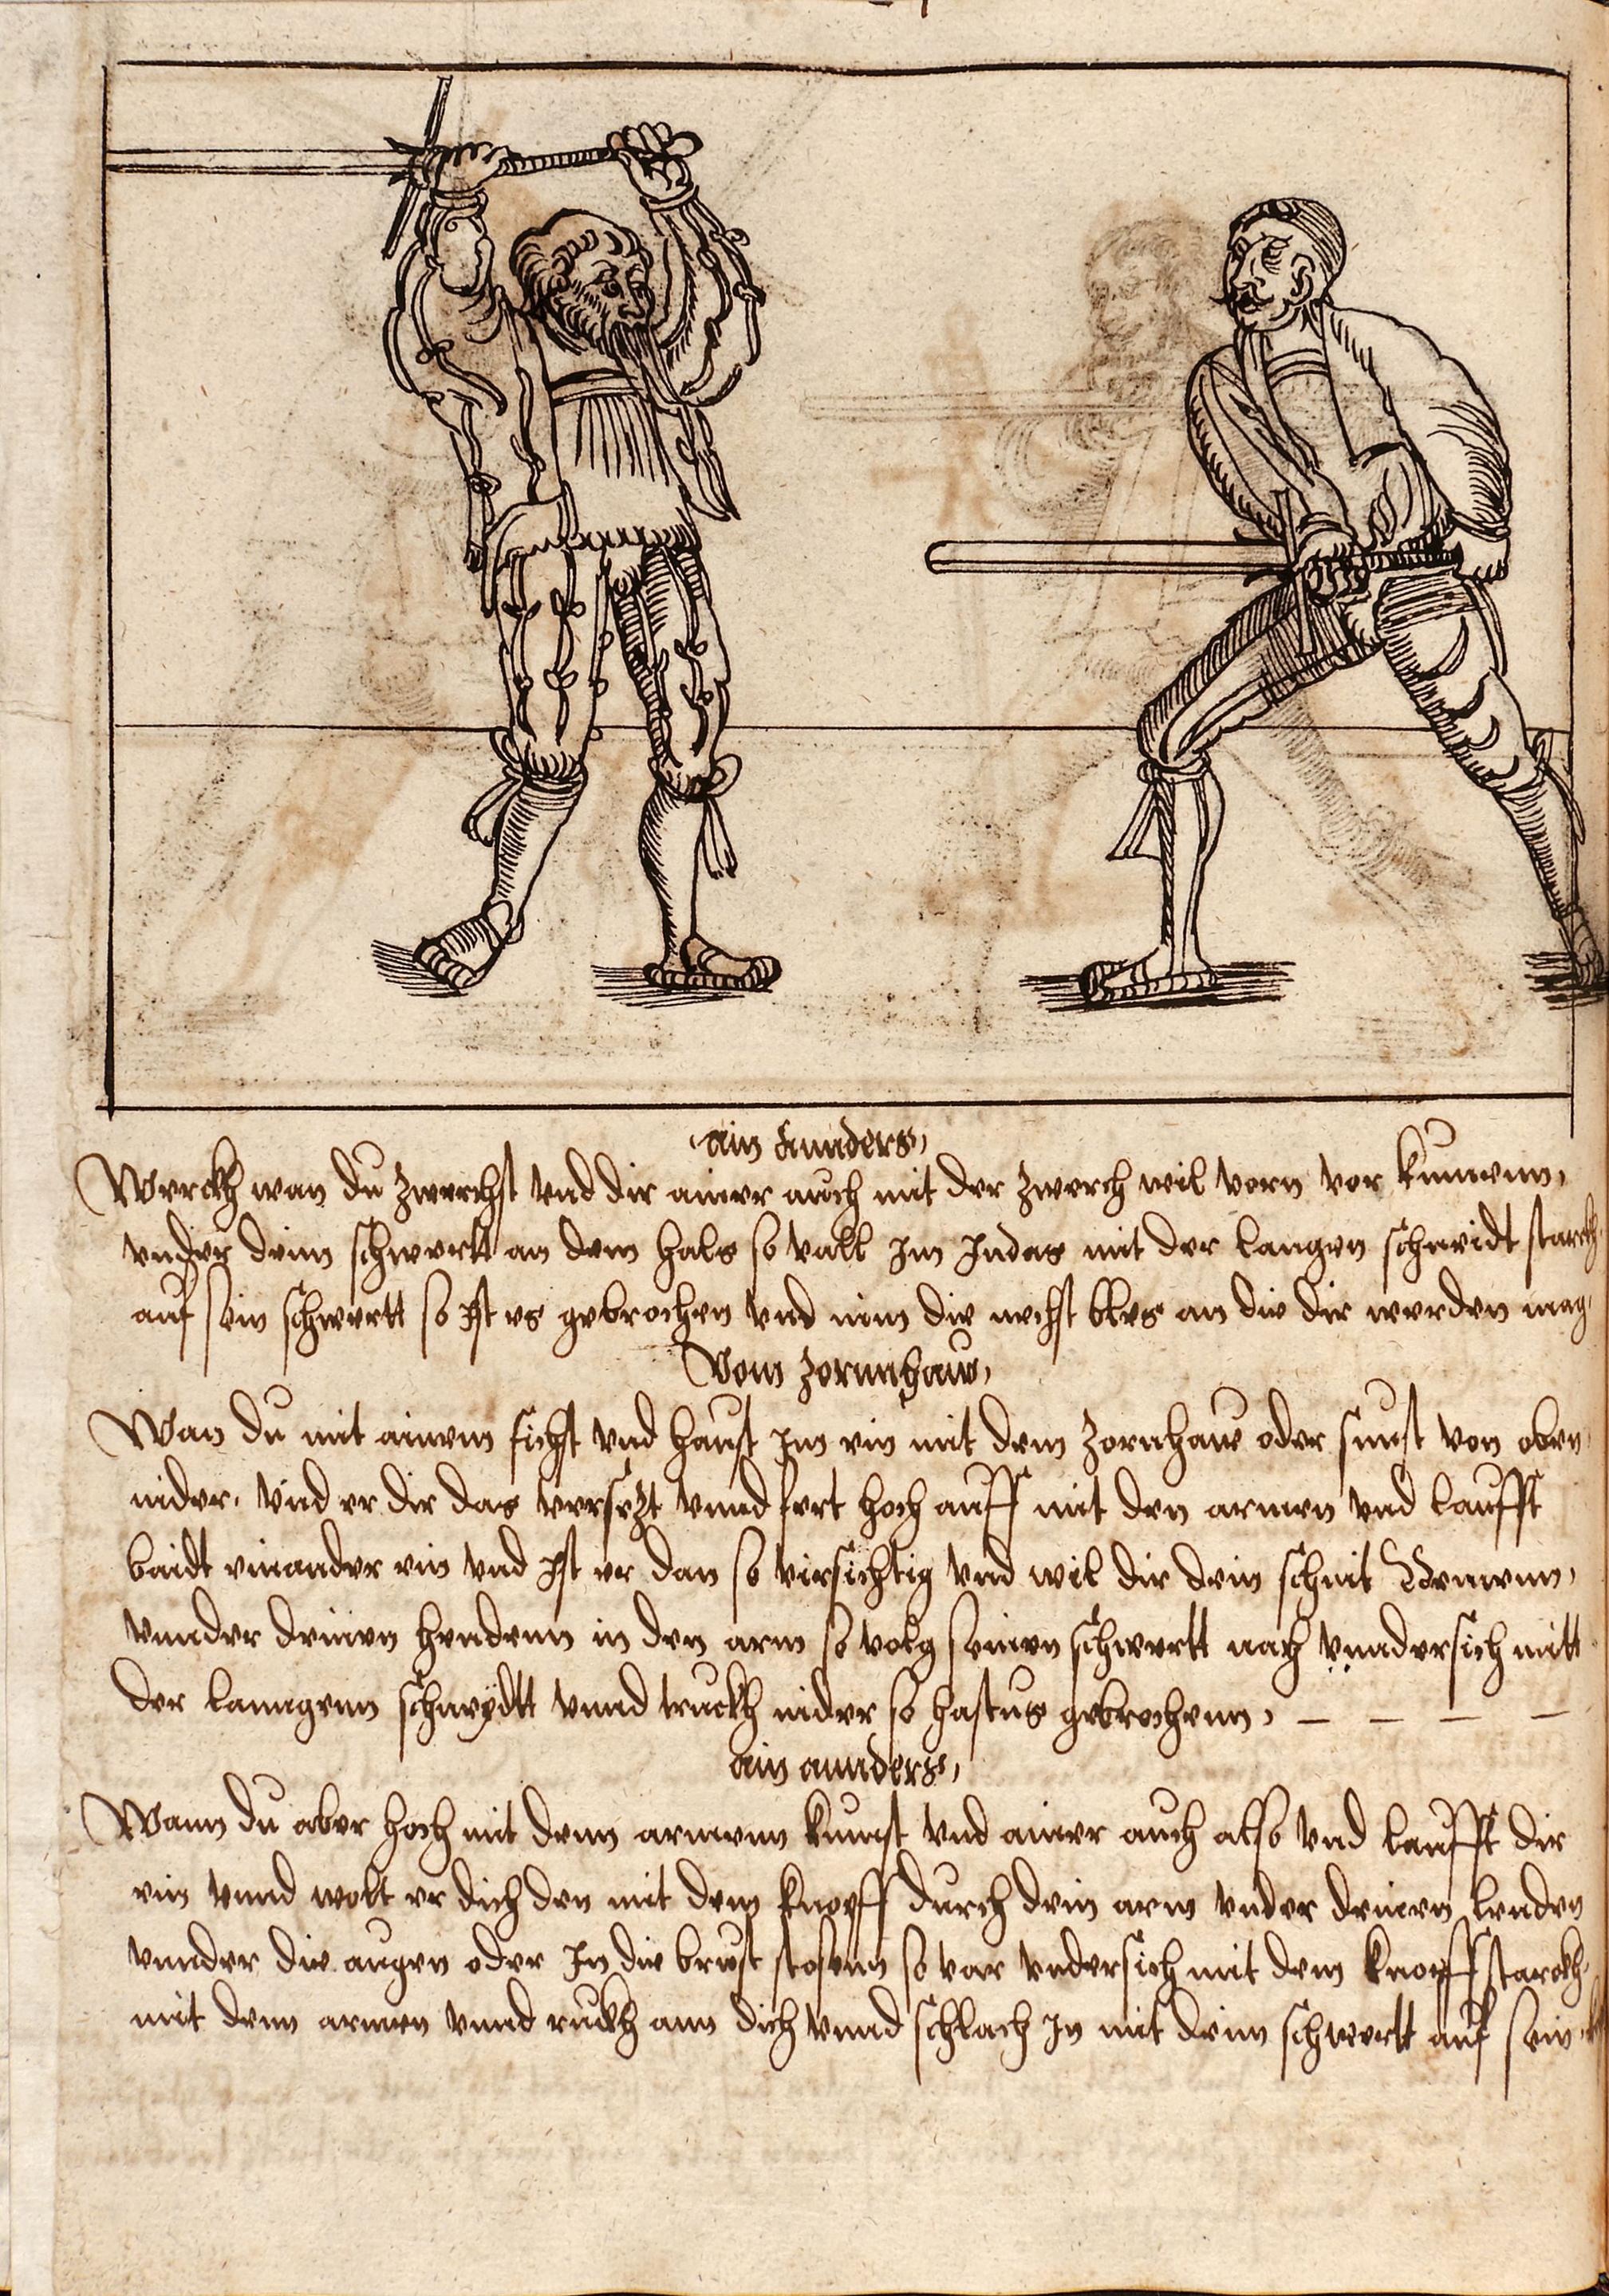 ain annders,
Merckh wan du zwerchst vnd dir ainer auch mit der zwerch wil vorn vor kumenn,
vnder dein schwertt an dem hals so vall im Indas mit der langen schneidt starckh
auf sein schwertt so Ist es gebrochen vnd nim die nechst bles an die dir werden mag
Vom zornnhaw,
Wan du mit ainem fichst vnd haust Im ein mit dem zornhaw oder sunst von oben
nider, vnd er dir das versezt vnnd fert hoch auff mit den armen vnd laufft
baidt einander ein vnd Ist er dan so virsichtig vnd wil dir dein schnit Nemenn,
vnnder deinen hendenn in den arm so volg seinen schwertt nach vnndersich mitt
der lanngenn schneydtt vnnd truckh nider so hastus gebrochenn,
ain annders,
Wann du aber hoch mit denn armenn kumst vnd ainer auch also vnd laufft dir
ein vnnd wolt er dich den mit dem knopff durch dein arm vnder deinen henden
vnnder die augen oder In die brust stosenn so var vndersich mit dem knopff starckh
mit denn armen vnnd ruckh ann dich vnnd schlach In mit dein schwertt auf sein